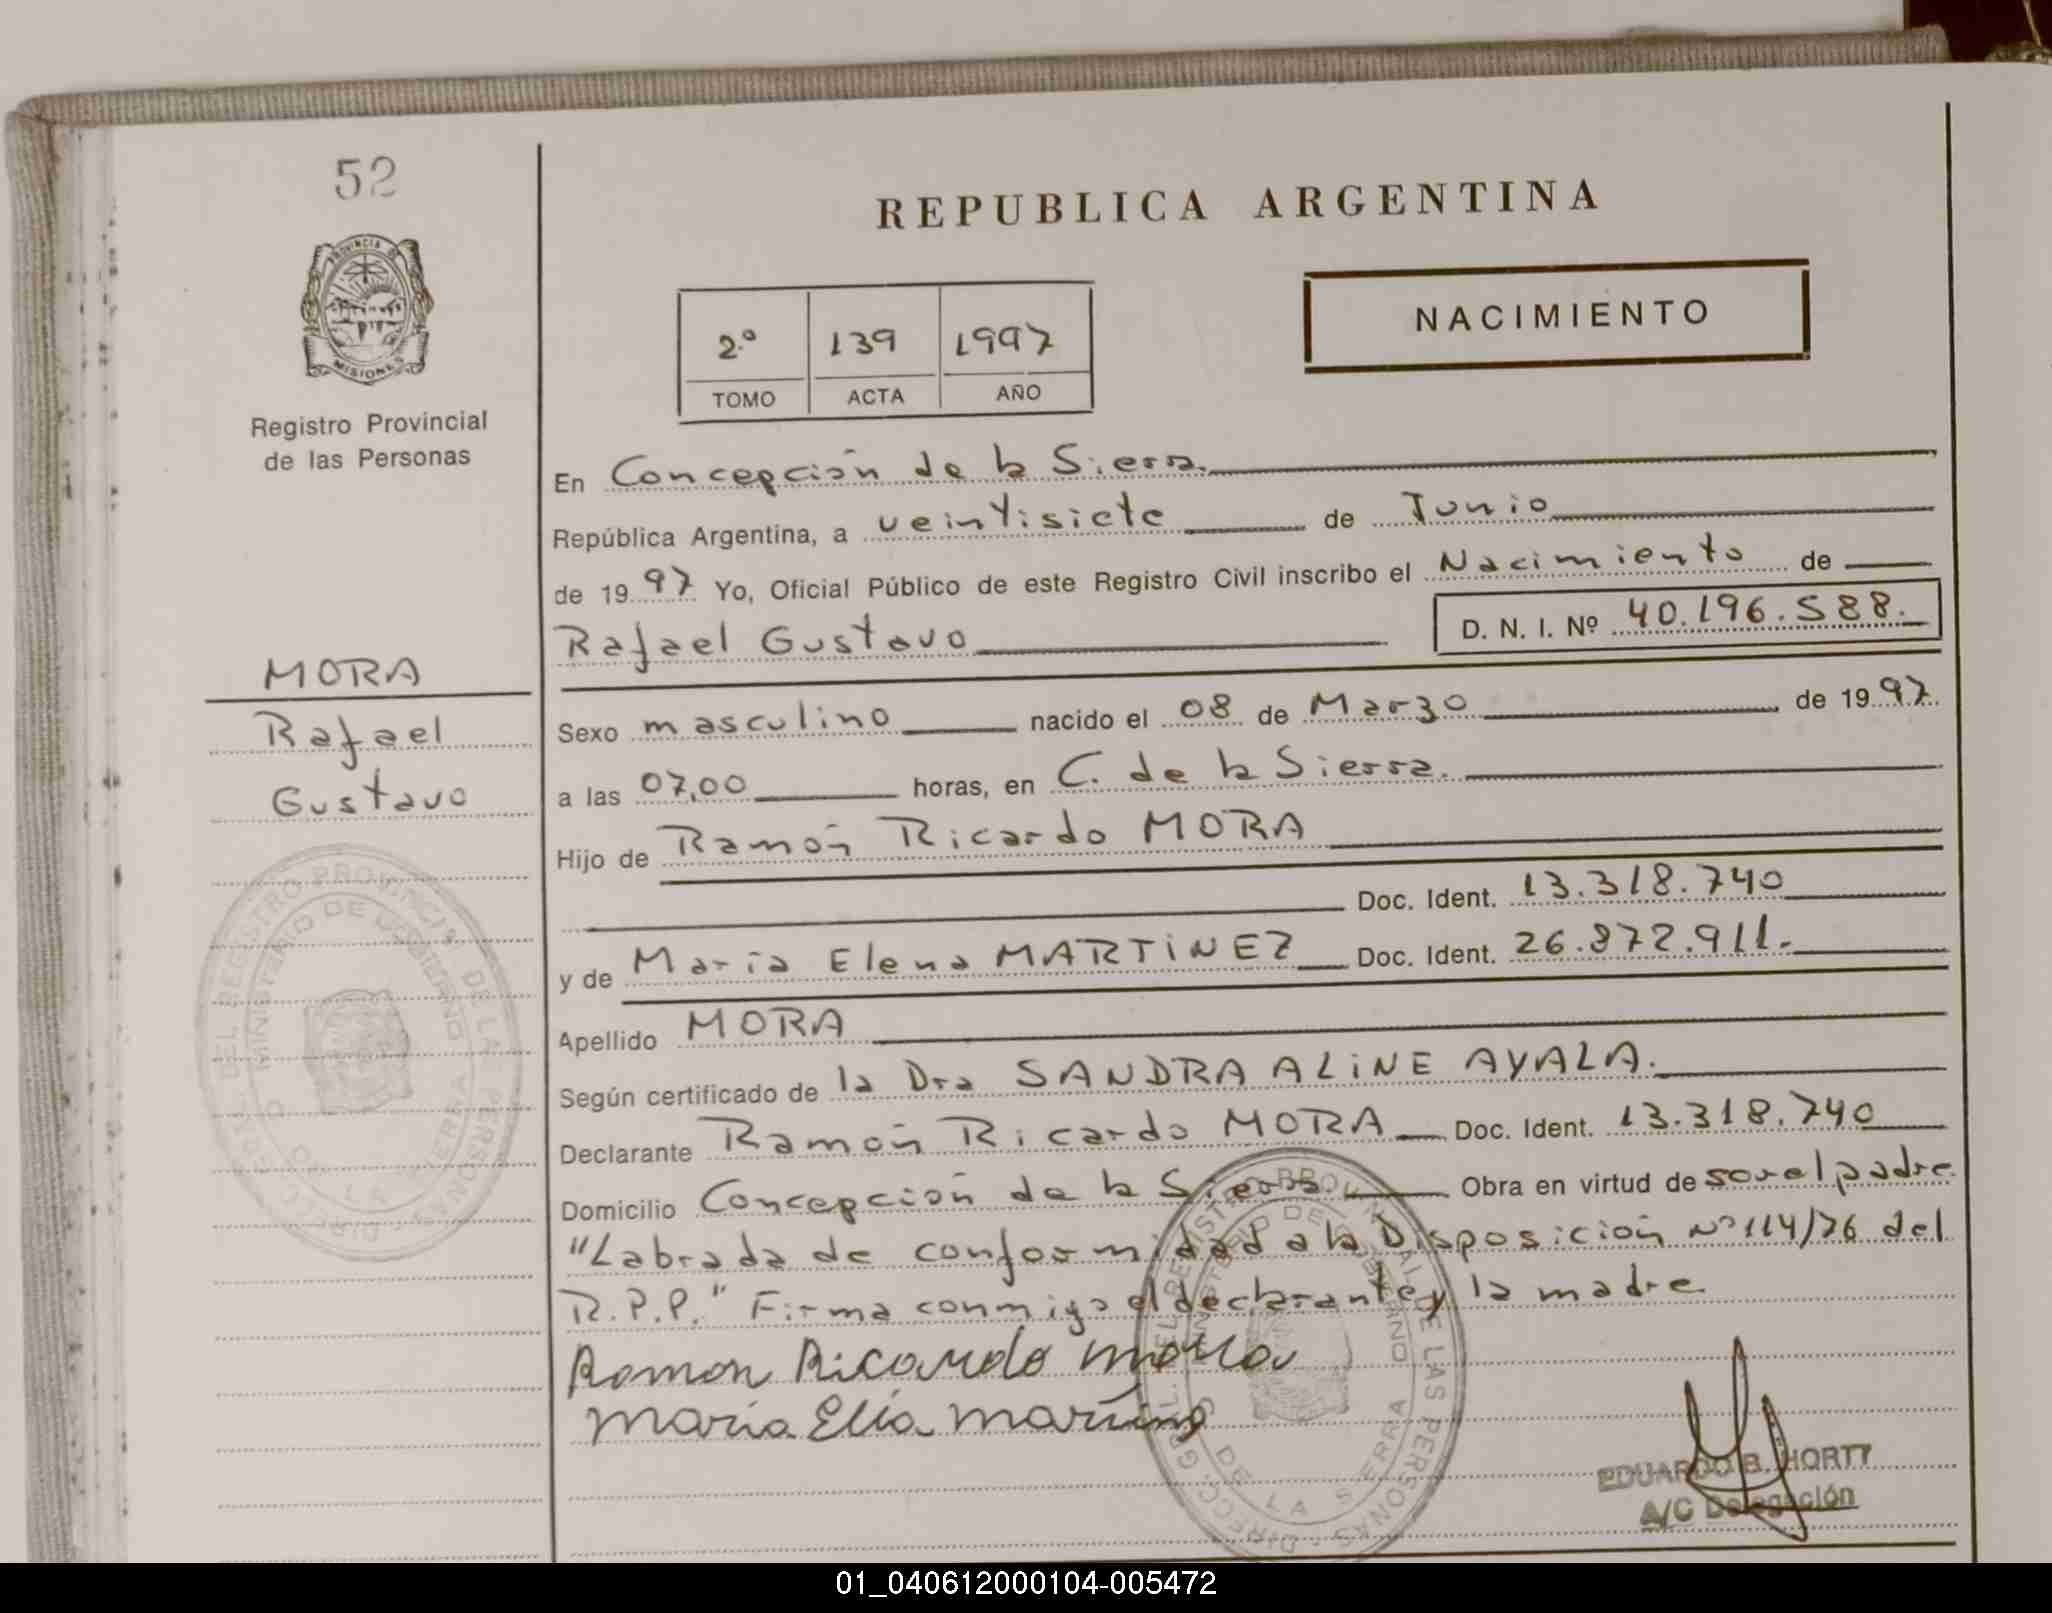 52
PROVINCIA DE
MISIONES
Registro Provincial
de las Personas
MORA
Rafael
Gustavo
REPUBLICA ARGENTINA
NACIMIENTO
2º 139 1997
TOMO ACTA AÑO
En Concepción de la Sierra.
República Argentina, a veintisiete de Junio
de 1997 Yo, Oficial Público de este Registro Civil inscribo el Nacimiento de
Rafael Gustavo D. N. I. Nº 40.196.588.
Sexo masculino nacido el 08 de Marzo de 1997.
a las 07,00 horas, en C. de la Sierra.
Hijo de Ramón Ricardo MORA
Doc. Ident. 13.318.740
y de María Elena MARTINEZ Doc. Ident. 26.872.911.
Apellido MORA
Según certificado de la Dra SANDRA ALINE AYALA.
Declarante Ramón Ricardo MORA Doc. Ident. 13.318.740
Domicilio Concepción de la Sierra. Obra en virtud de ser el padre
"Labrada de conformidad a la Disposición Nº 114/76 del
R.P.P." Firma conmigo el declarante y la madre
Ramon Ricardo Mora
María
EDUARDO B. HORTT
A/C Delegación
01_040612000104-005472